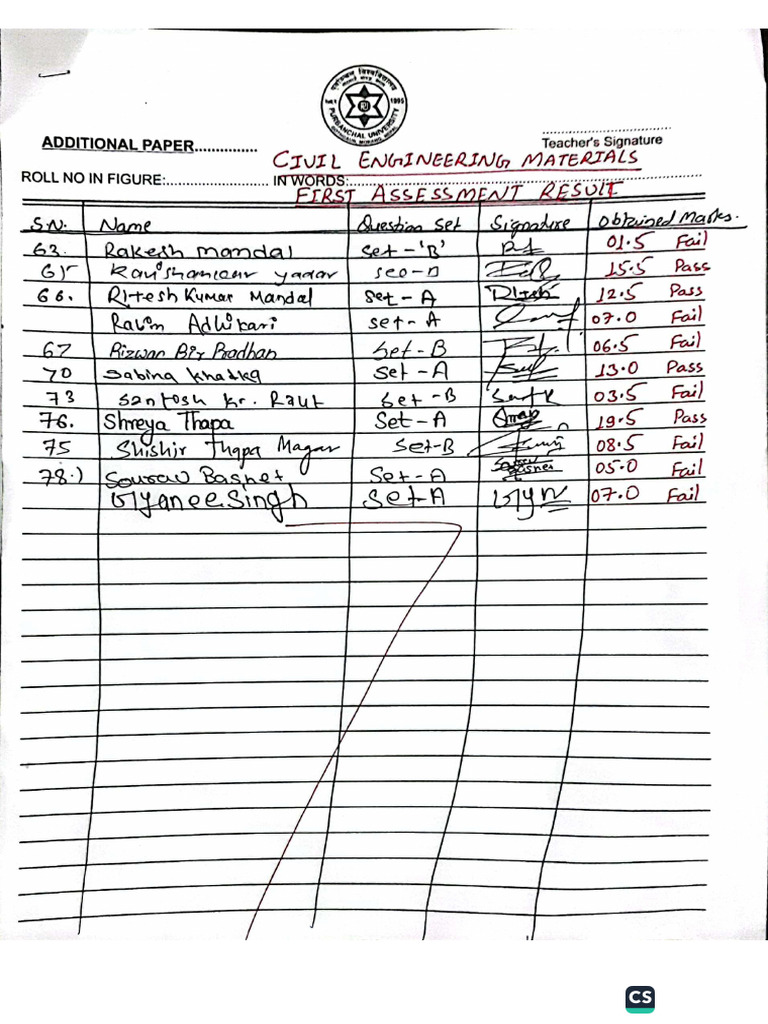 पूर्वाञ्चल विश्वविद्यालय
Estd. 1995
PURBANCHAL UNIVERSITY
ADDITIONAL PAPER...............
Teacher's Signature
CIVIL ENGINEERING MATERIALS
ROLL NO IN FIGURE:........................ IN WORDS:
FIRST ASSESSMENT RESULT
S.N. Name Question Set Signature Obtained Marks.
63. Rakesh Mandal Set-'B' 01.5 Fail
65 yadav 15.5 Pass
66. Ritesh Kumar Mandal Set-A Ritesh 12.5 Pass
Rabin Adhikari Set-A 07.0 Fail
67 Rizwan Bir Pradhan Set-B 06.5 Fail
70 Sabina Khadka Set-A 13.0 Pass
73 Santosh kr. Raut Set-B 03.5 Fail
76. Shreya Thapa Set-A 19.5 Pass
75 Shishir Thapa Magar Set-B 08.5 Fail
78.) Sourav Basnet Set-A 05.0 Fail
Gyanee Singh Set-A 07.0 Fail
CS